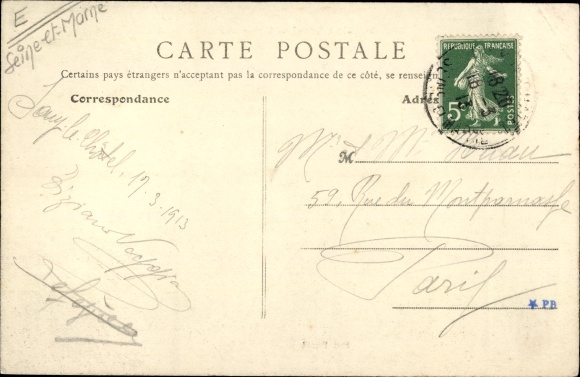 E
Seine-et-Marne
CARTE POSTALE
Certains pays étrangers n'acceptant pas la correspondance de ce côté, se renseign
Correspondance
Adres
RÉPUBLIQUE FRANÇAISE
5c
POSTES
Jouy-le-Châtel, 17-3-1913
Tiziano
M
Mr & Mme
59, Rue du Montparnasse
Paris
★ PB